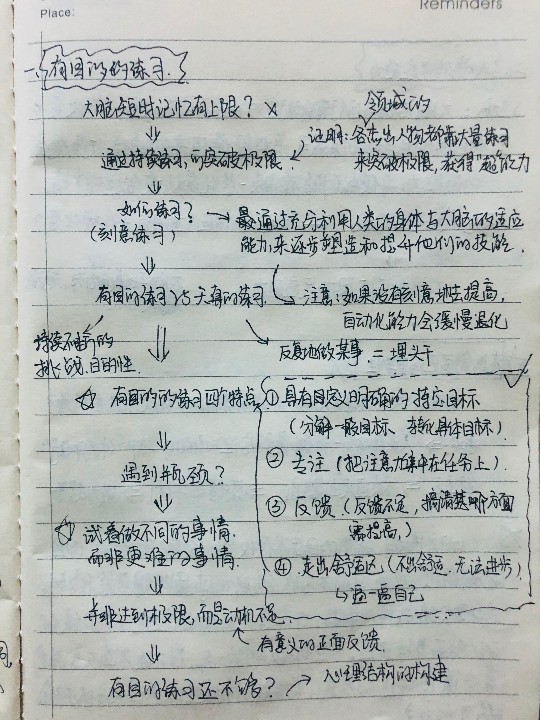 Place:
Reminders
一、有目的的练习.
大脑短时记忆有上限? ×
领域的
证明:各杰出人物都靠大量练习
来突破极限,获得"超"能力
通过持续练习,可突破极限.
如何练习?
(刻意练习)
最通过充分利用人类的身体与大脑的适应
能力,来逐步塑造和提升他们的技能.
有目的练习 VS 天真的练习
注意:如果没有刻意地去提高,
自动化能力会缓慢退化
持续不断的
挑战,目的性.
反复地做某事. = 埋头干
☆ 有目的的练习四个特点
① 具有定义明确的特定目标
(分解一般目标、转化具体目标)
② 专注(把注意力集中在任务上).
遇到瓶颈?
③ 反馈(反馈不足,搞清楚哪方面
需提高,)
☆ 试着做不同的事情,
而非更难的事情.
④ 走出舒适区(不出舒适.无法进步)
↳ 逼一逼自己
并非达到极限,而是动机不足.
有意义的正面反馈.
有目的练习还不够? → 心理结构的构建